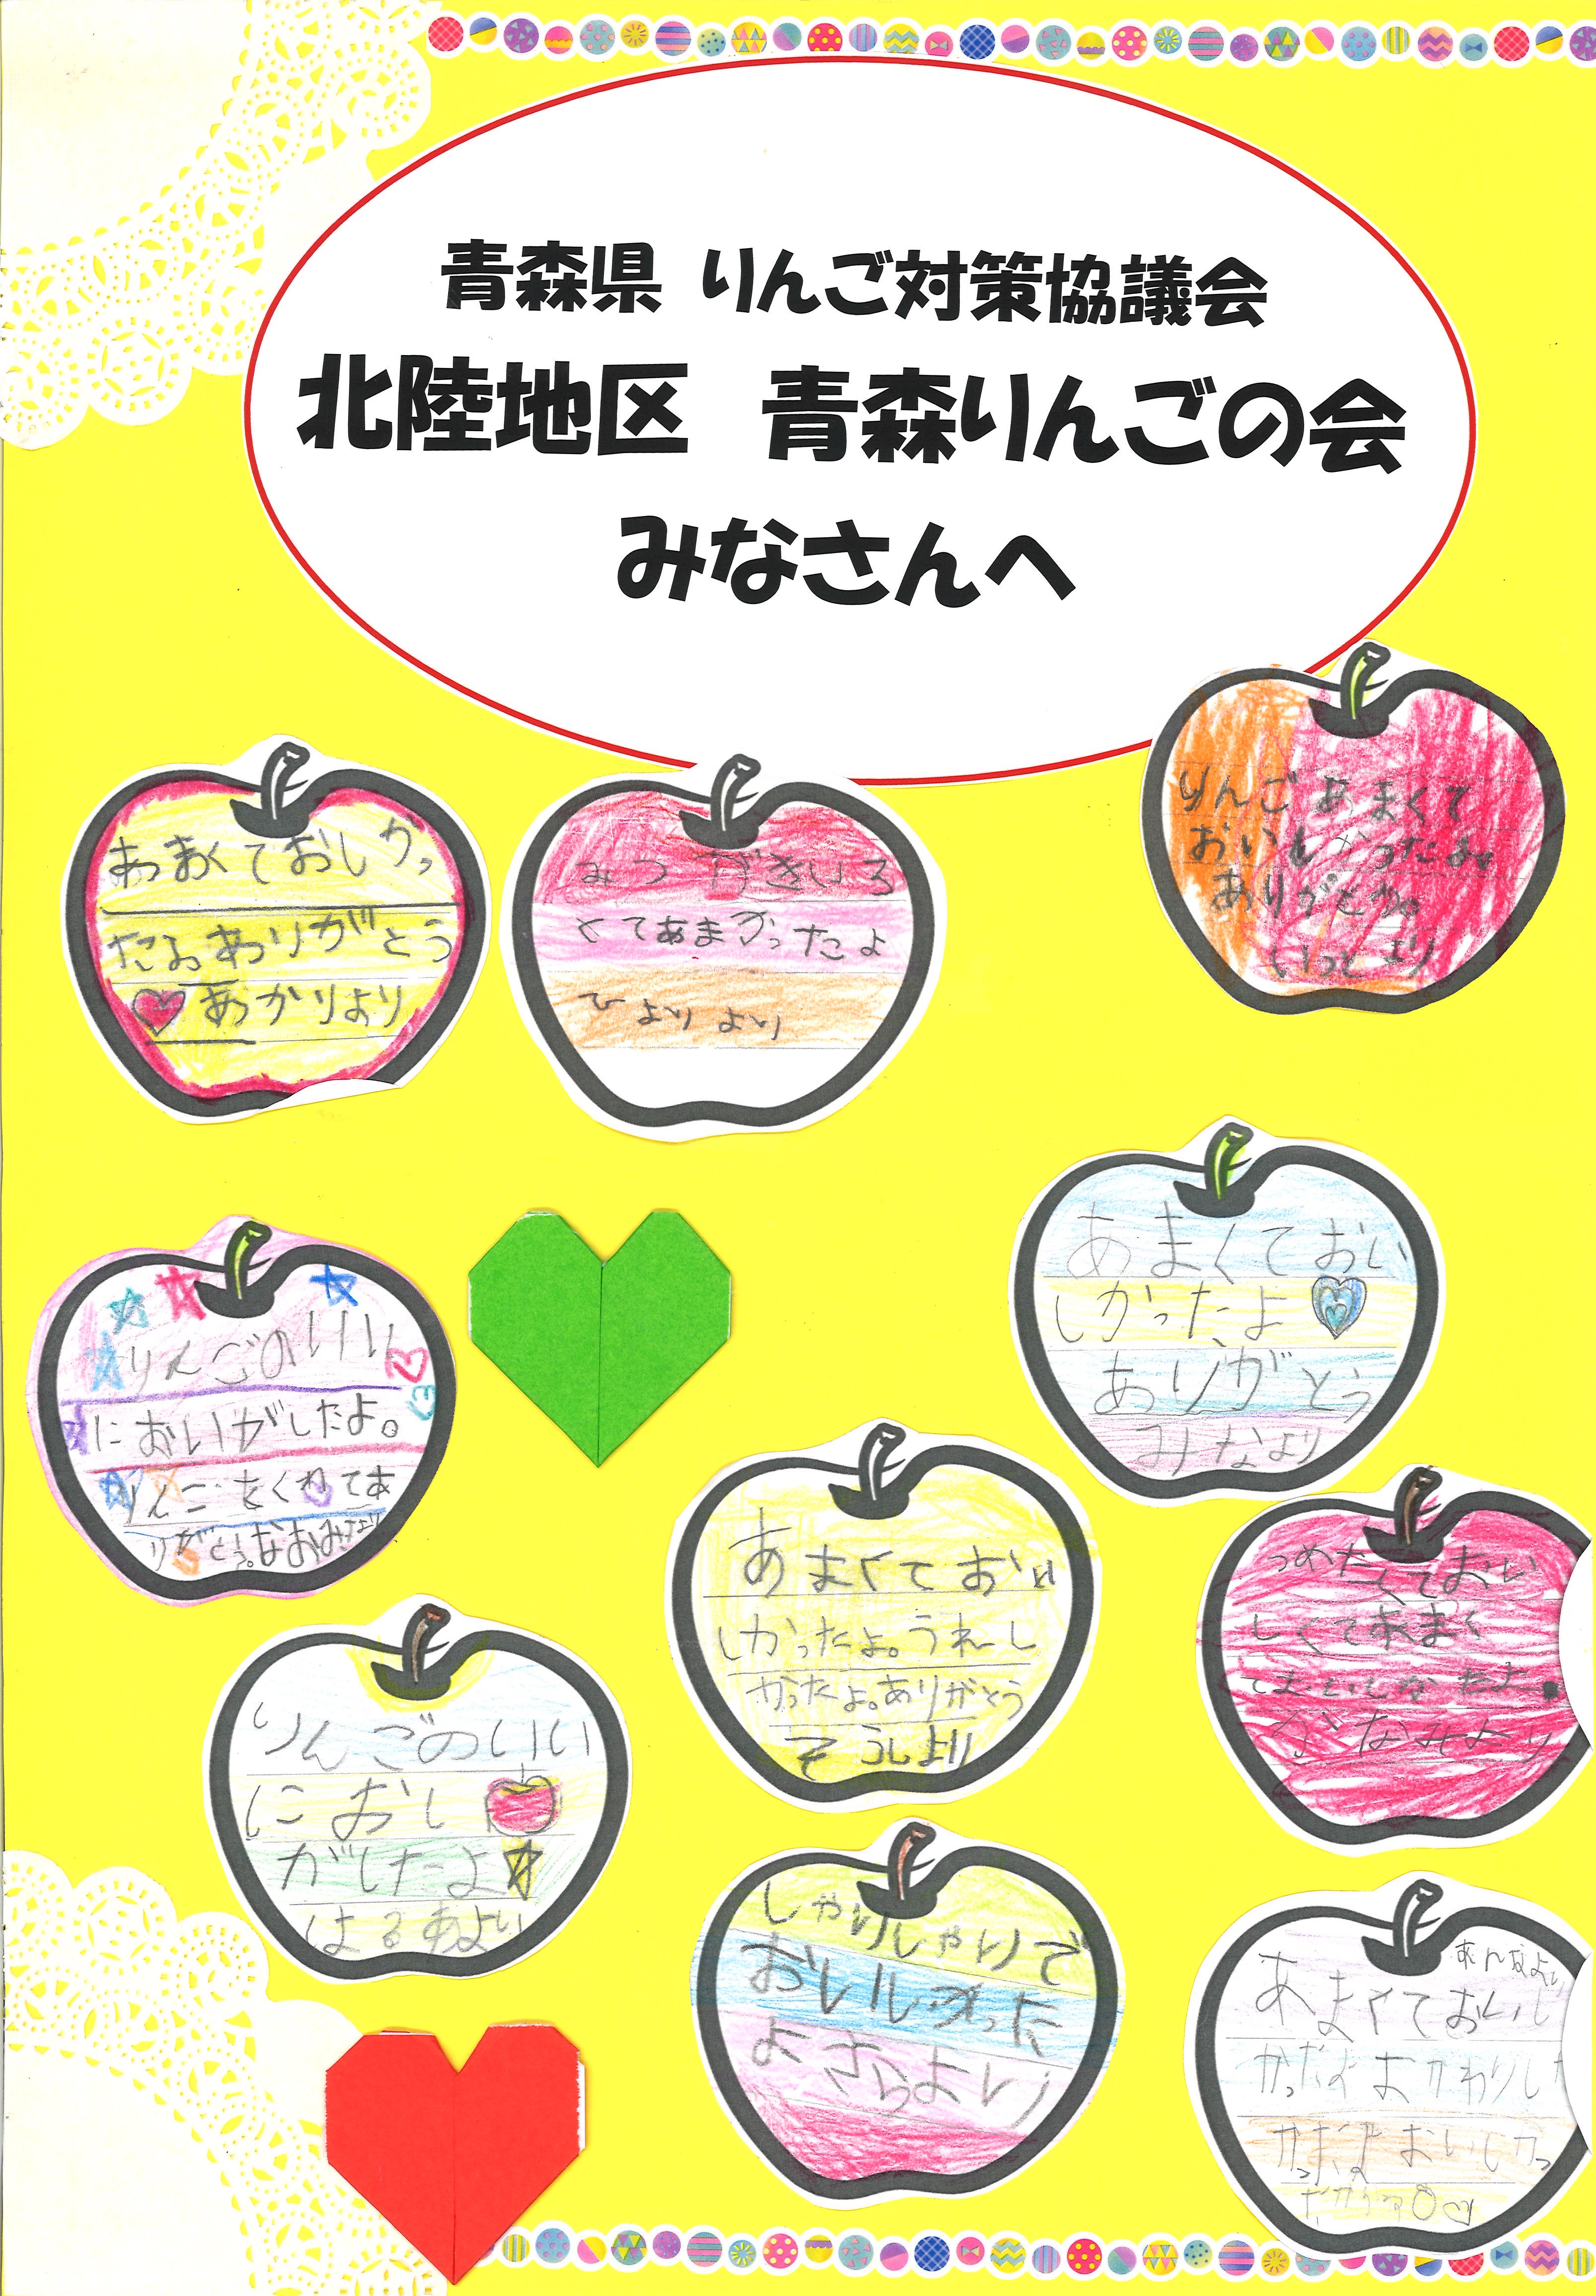 青森県 りんご対策協議会
北陸地区 青森りんごの会
みなさんへ
りんごあまくて
おいしかったよ。
ありがとう。
いっとより
あまくておしかっ
たよありがとう
あかりより
みつがきいろ
くてあまかったよ
ひよりより
あまくておい
しかったよ
ありがとう
みなより
りんごのいい
においがしたよ。
りんごをくれてあ
りがとう。なおみより
あまくておい
しかったよ。うれーし
かったよ。ありがとう
そうしより
つめたくておい
しくてあまく
みより
りんごのいい
におい
がしたよ
はるあより
しゃりしゃりで
おいしかった
よさらより
あんなより
あまくておいし
かったよおかわりし
おいしかっ